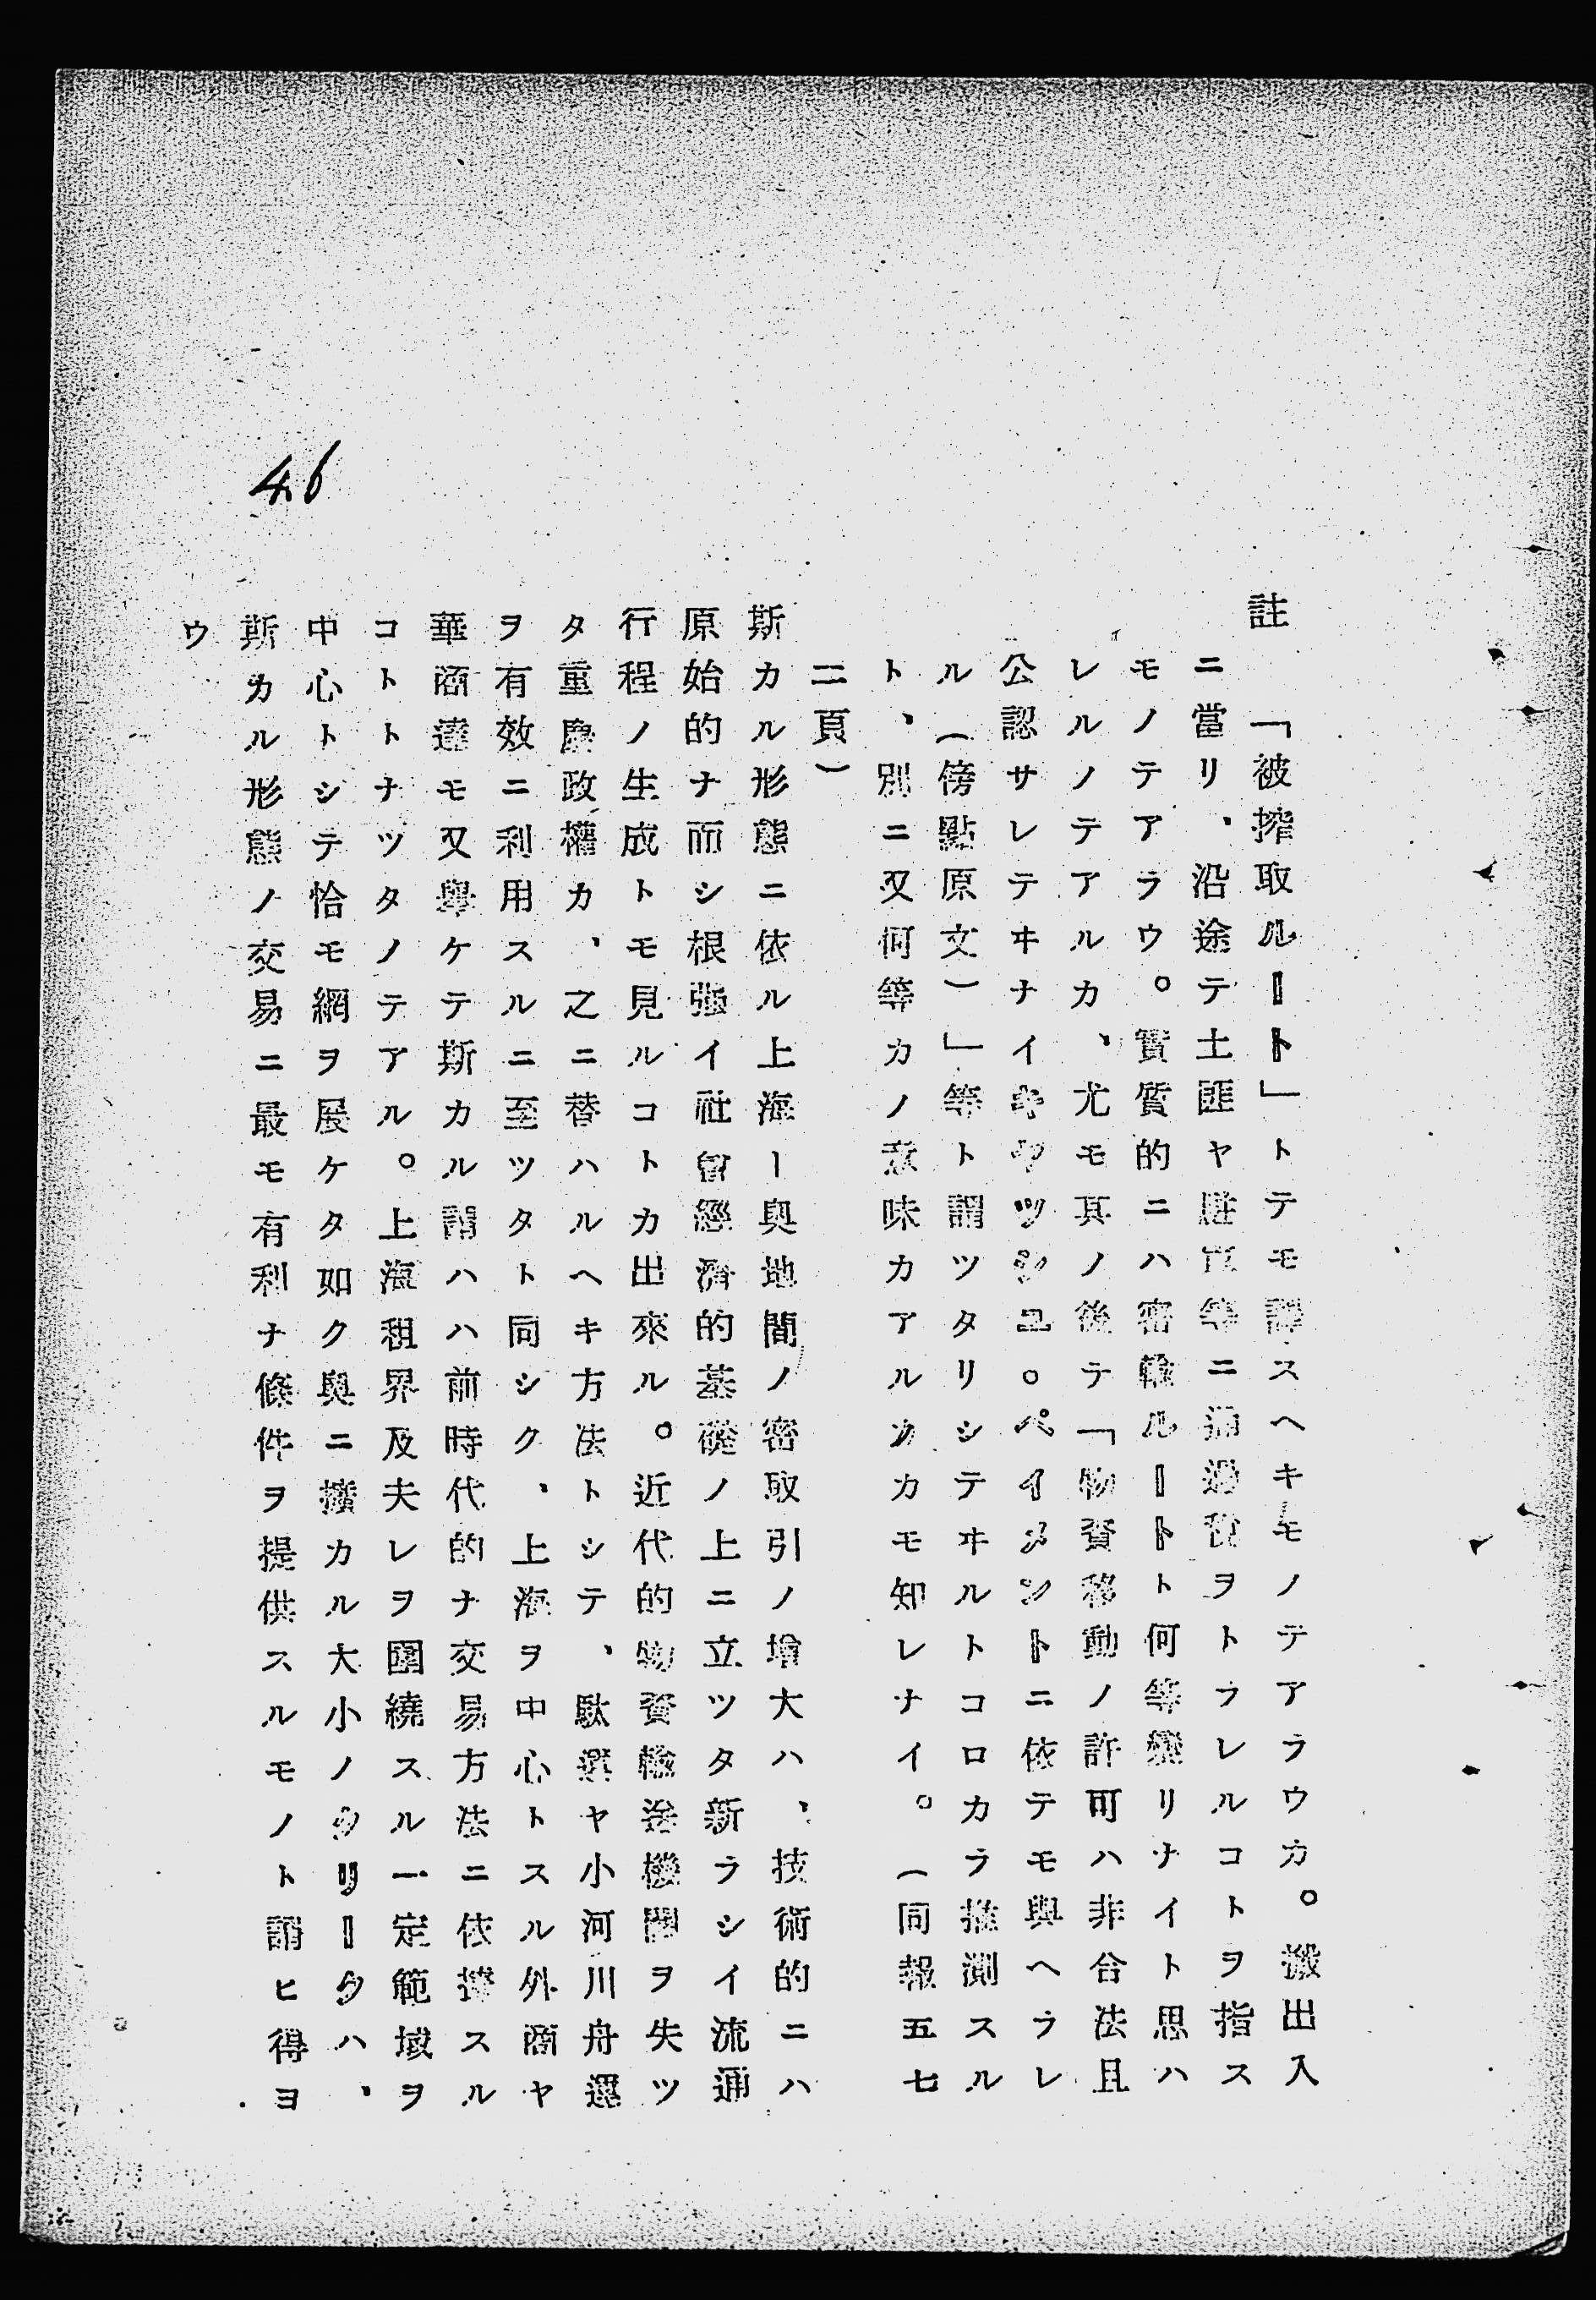 46
註　「被搾取ルート」トテモ譯スヘキモノテアラウカ。搬出入
ニ當リ、沿途テ土匪ヤ駐軍等ニ通過税ヲトラレルコトヲ指ス
モノテアラウ。實質的ニハ密輸ルートト何等變リナイト思ハ
レルノテアルカ、尤モ其ノ後テ「物資移動ノ許可ハ非合法且
公認サレテヰナイキヤツシユ。ペイメントニ依テモ與ヘラレ
ル（傍點原文）」等ト謂ツタリシテヰルトコロカラ推測スル
ト、別ニ又何等カノ意味カアルカカモ知レナイ。（同報五七
二頁）
斯カル形態ニ依ル上海ー奥地間ノ密取引ノ增大ハ、技術的ニハ
原始的ナ而シ根强イ社會經濟的基礎ノ上ニ立ツタ新ラシイ流通
行程ノ生成トモ見ルコトカ出來ル。近代的物資輸送機關ヲ失ツ
タ重慶政權カ、之ニ替ハルヘキ方法トシテ、駄運ヤ小河川舟運
ヲ有效ニ利用スルニ至ツタト同シク、上海ヲ中心トスル外商ヤ
華商達モ又擧ケテ斯カル謂ハハ前時代的ナ交易方法ニ依據スル
コトトナツタノテアル。上海租界及夫レヲ圍繞スル一定範域ヲ
中心トシテ恰モ網ヲ展ケタ如ク奥ニ擴カル大小ノクリークハ、
斯カル形態ノ交易ニ最モ有利ナ條件ヲ提供スルモノト謂ヒ得ヨ
ウ